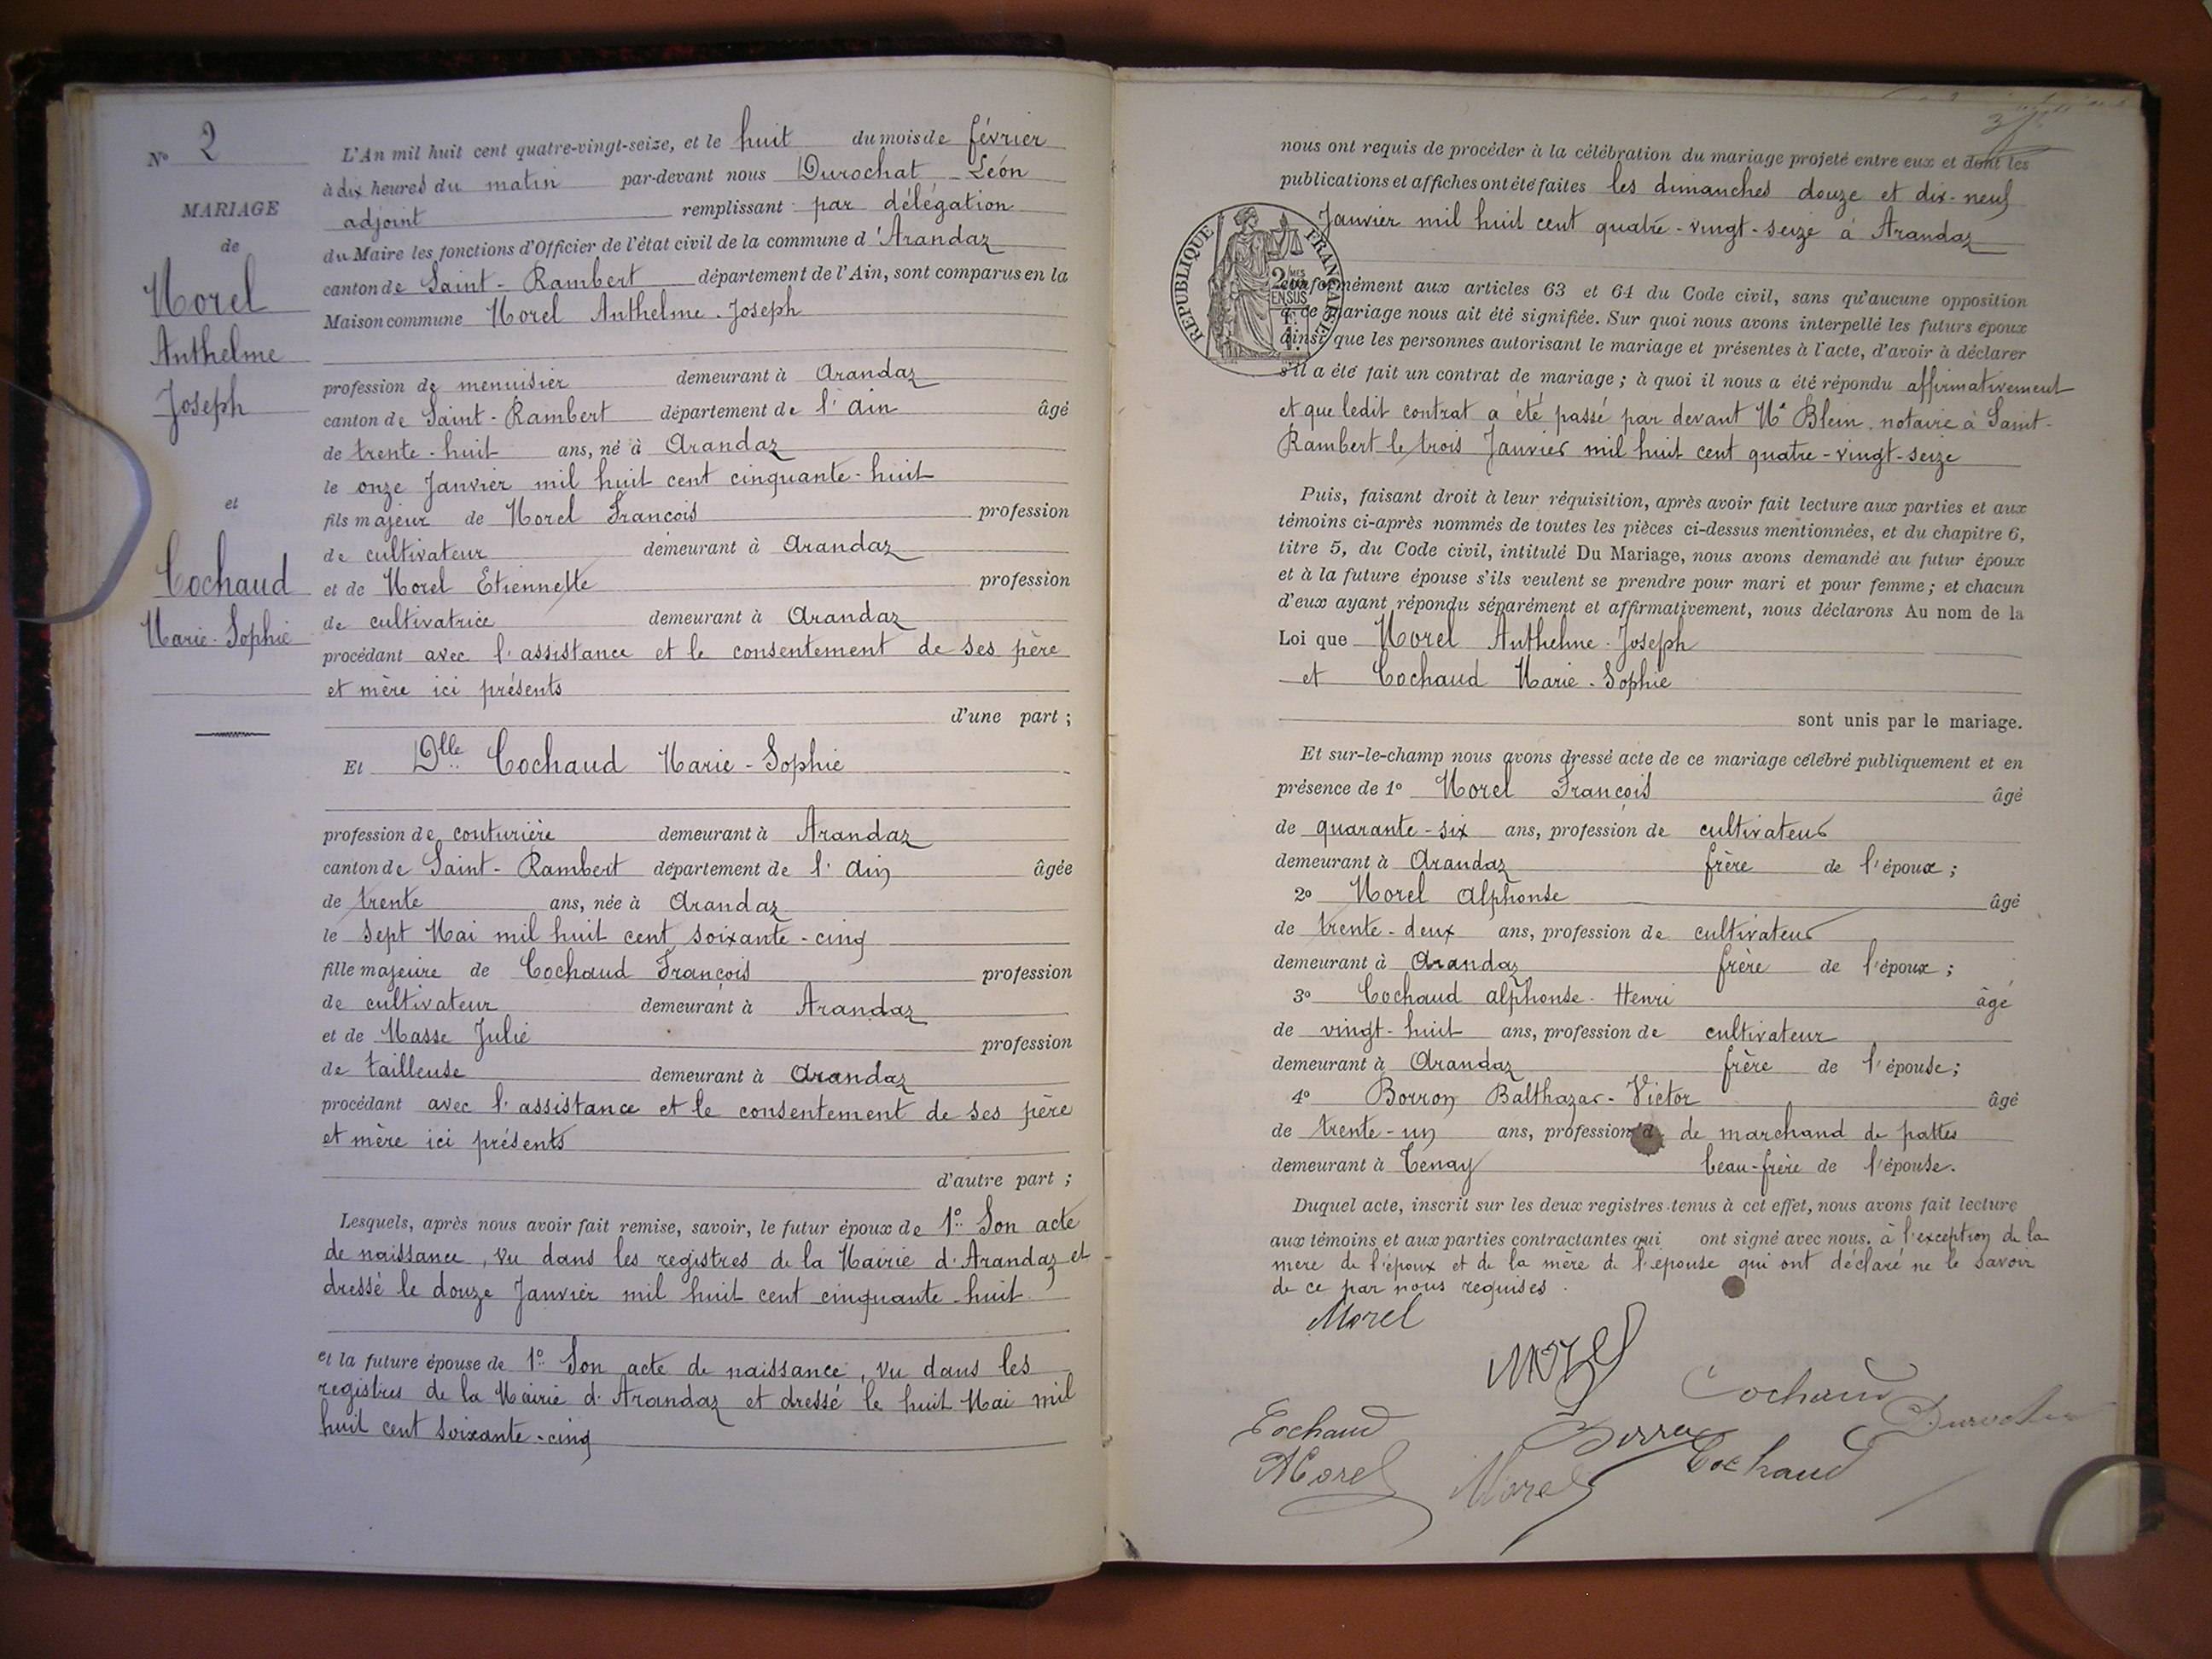 N° 2
MARIAGE
de
Morel
Anthelme
Joseph
et
Cochaud
Marie-Sophie
L'An mil huit cent quatre-vingt-seize, et le huit du mois de février
à dix heures du matin par-devant nous Durochat Léon
adjoint remplissant par délégation
du Maire les fonctions d'Officier de l'état civil de la commune d'Arandaz
canton de Saint-Rambert département de l'Ain, sont comparus en la
Maison commune Morel Anthelme-Joseph
profession de menuisier demeurant à Arandaz
canton de Saint-Rambert département de l'Ain âgé
de trente-huit ans, né à Arandaz
le onze Janvier mil huit cent cinquante-huit
fils majeur de Morel François profession
de cultivateur demeurant à Arandaz
et de Morel Etiennette profession
de cultivatrice demeurant à Arandaz
procédant avec l'assistance et le consentement de ses père
et mère ici présents
d'une part ;
Et Dlle Cochaud Marie-Sophie
profession de couturière demeurant à Arandaz
canton de Saint-Rambert département de l'Ain âgée
de trente ans, née à Arandaz
le sept Mai mil huit cent soixante-cinq
fille majeure de Cochaud François profession
de cultivateur demeurant à Arandaz
et de Masse Julie profession
de tailleuse demeurant à Arandaz
procédant avec l'assistance et le consentement de ses père
et mère ici présents
d'autre part ;
Lesquels, après nous avoir fait remise, savoir, le futur époux de 1° Son acte
de naissance, vu dans les registres de la Mairie d'Arandaz et
dressé le douze Janvier mil huit cent cinquante-huit
et la future épouse de 1° Son acte de naissance, vu dans les
registres de la Mairie d'Arandaz et dressé le huit Mai mil
huit cent soixante-cinq
nous ont requis de procéder à la célébration du mariage projeté entre eux et dont les
publications et affiches ont été faites les dimanches douze et dix-neuf
Janvier mil huit cent quatre-vingt-seize à Arandaz
REPUBLIQUE FRANÇAISE
2/MES EN SUS
conformément aux articles 63 et 64 du Code civil, sans qu'aucune opposition
à ce mariage nous ait été signifiée. Sur quoi nous avons interpellé les futurs époux
ainsi que les personnes autorisant le mariage et présentes à l'acte, d'avoir à déclarer
s'il a été fait un contrat de mariage ; à quoi il nous a été répondu affirmativement
et que ledit contrat a été passé par devant Me Blein, notaire à Saint-
Rambert le trois Janvier mil huit cent quatre-vingt-seize
Puis, faisant droit à leur réquisition, après avoir fait lecture aux parties et aux
témoins ci-après nommés de toutes les pièces ci-dessus mentionnées, et du chapitre 6,
titre 5, du Code civil, intitulé Du Mariage, nous avons demandé au futur époux
et à la future épouse s'ils veulent se prendre pour mari et pour femme ; et chacun
d'eux ayant répondu séparément et affirmativement, nous déclarons Au nom de la
Loi que Morel Anthelme-Joseph
et Cochaud Marie-Sophie
sont unis par le mariage.
Et sur-le-champ nous avons dressé acte de ce mariage célébré publiquement et en
présence de 1° Morel François âgé
de quarante-six ans, profession de cultivateur
demeurant à Arandaz frère de l'époux ;
2° Morel Alphonse âgé
de trente-deux ans, profession de cultivateur
demeurant à Arandaz frère de l'époux ;
3° Cochaud Alphonse-Henri âgé
de vingt-huit ans, profession de cultivateur
demeurant à Arandaz frère de l'épouse ;
4° Borron Balthazar-Victor âgé
de trente-un ans, profession d de marchand de pattes
demeurant à Tenay beau-frère de l'épouse.
Duquel acte, inscrit sur les deux registres tenus à cet effet, nous avons fait lecture
aux témoins et aux parties contractantes qui ont signé avec nous, à l'exception de la
mère de l'époux et de la mère de l'épouse qui ont déclaré ne le savoir
de ce par nous requises.
Morel
Morel
Cochaud
Cochaud
Borron
Durochat
Morel
Morel
Cochaud